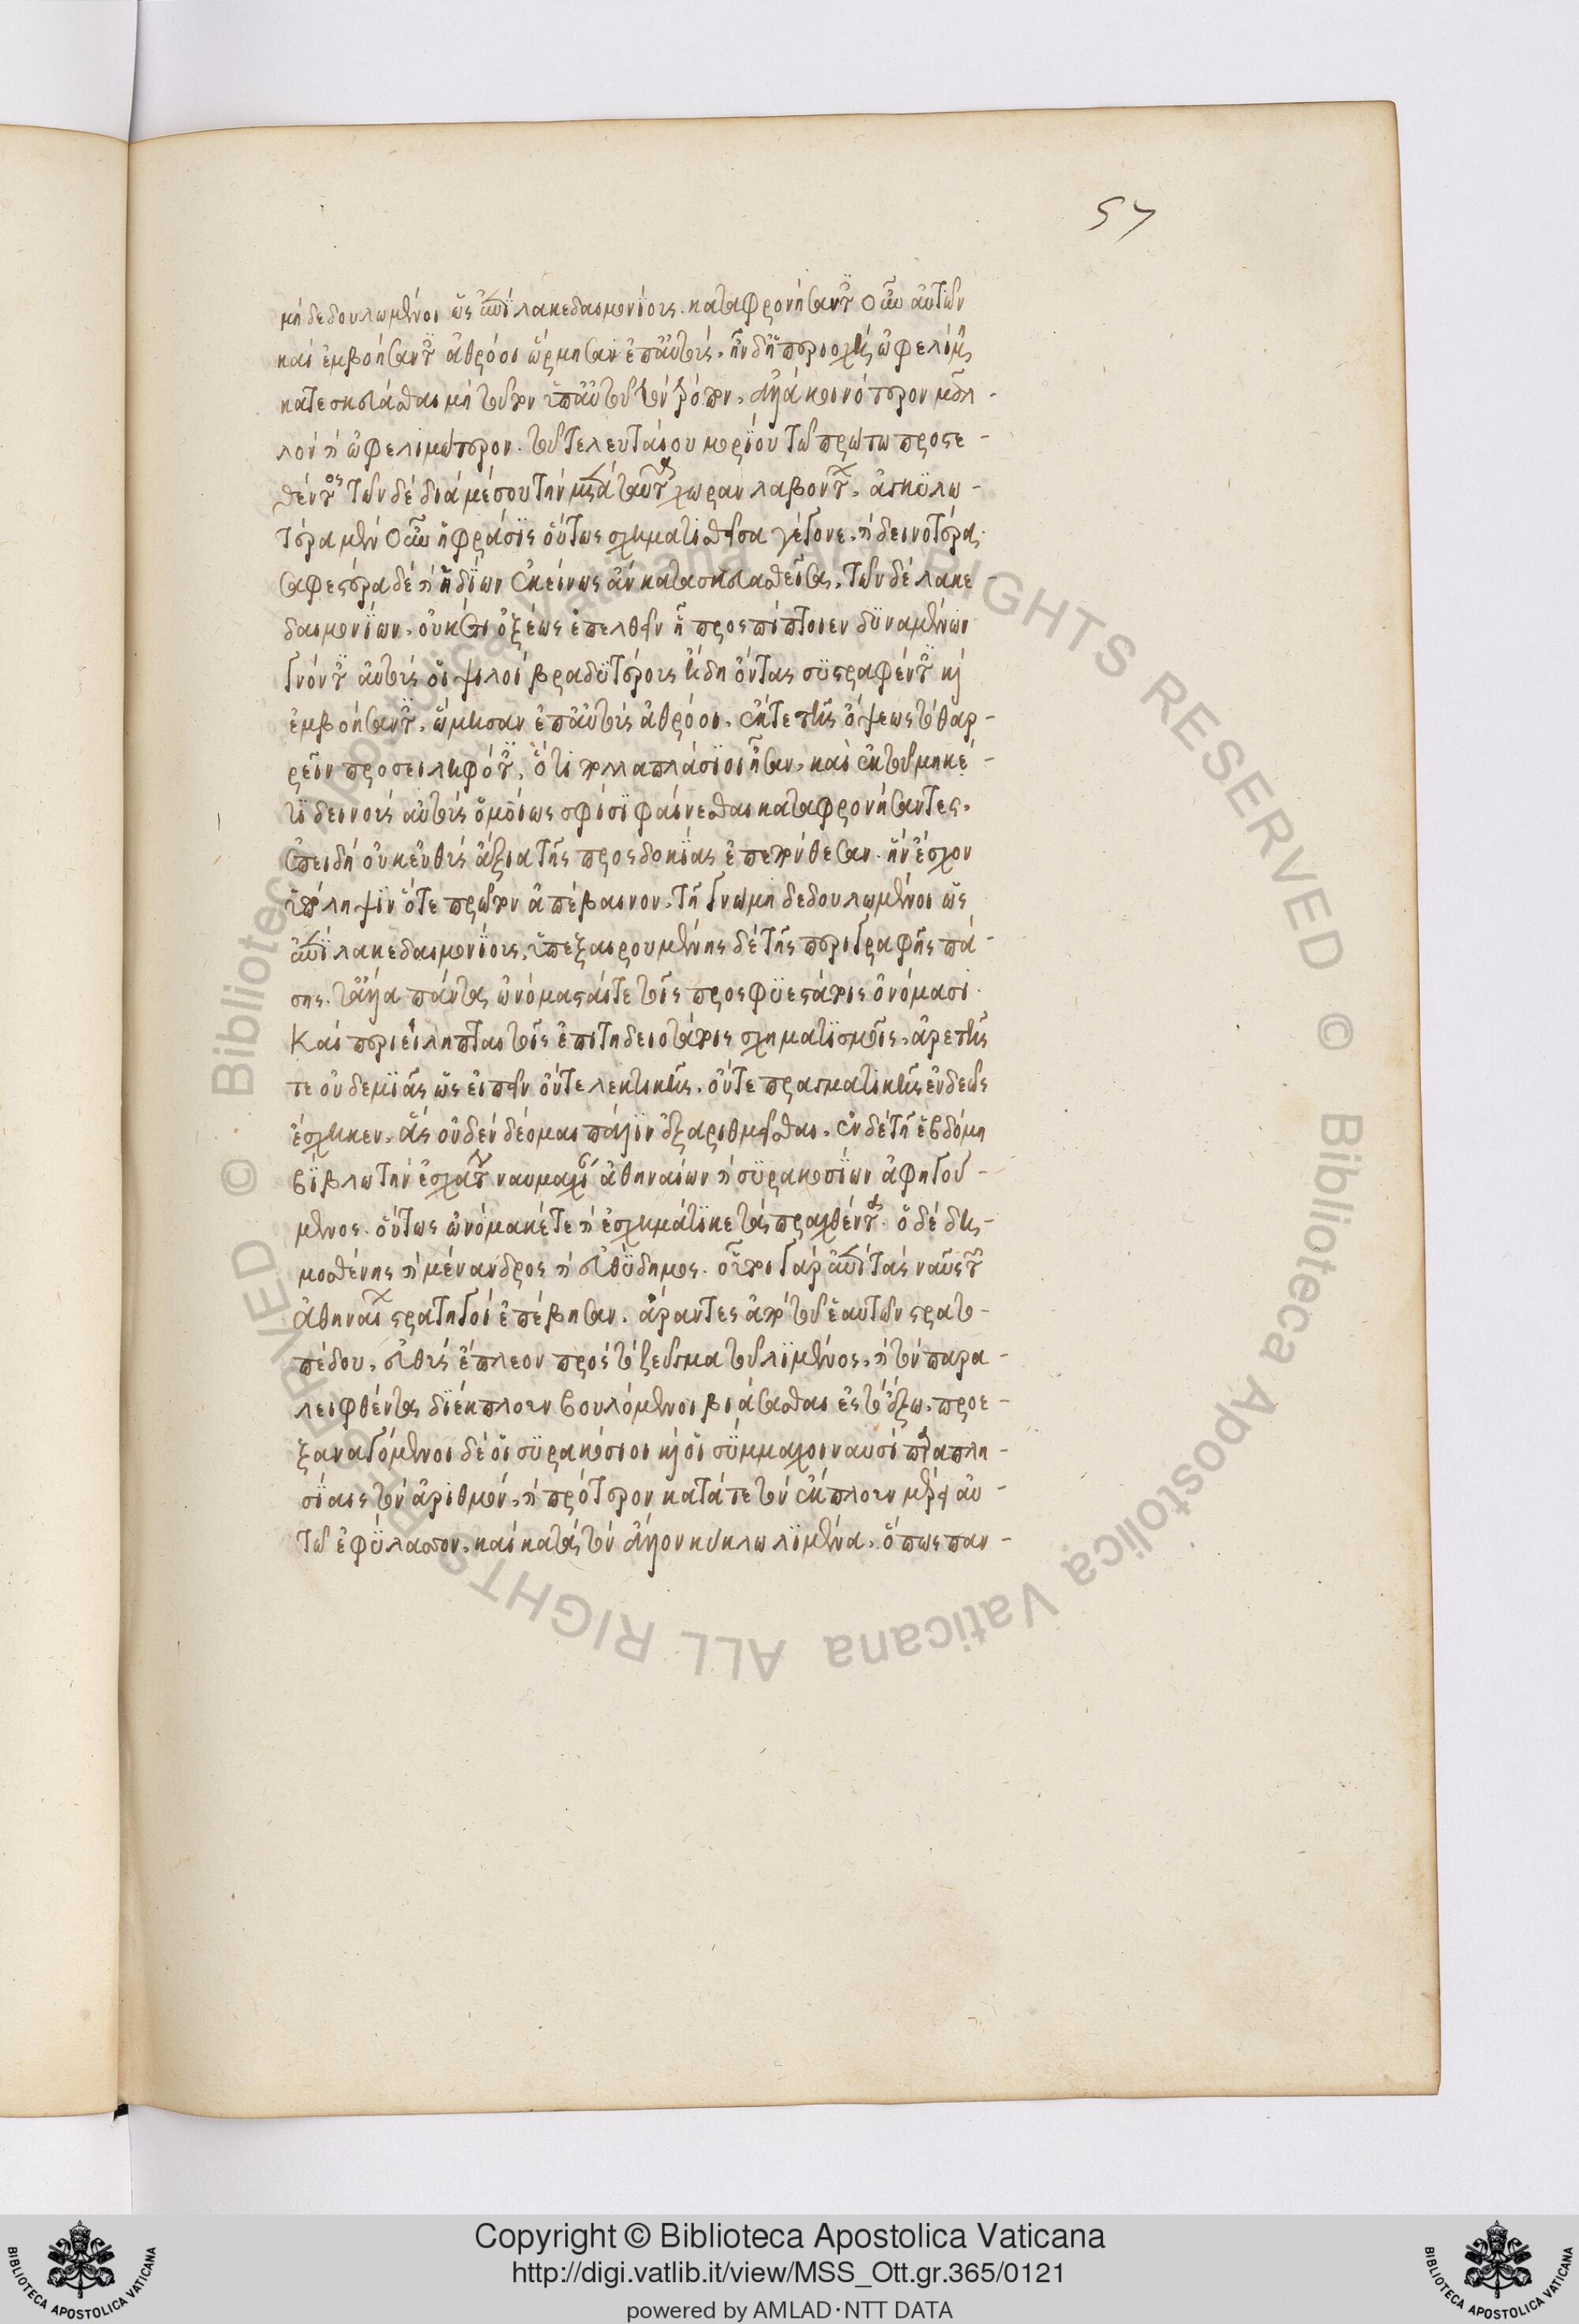 57
μὴ δεδουλωμένοι ὡς ἐπὶ λακεδαιμονίοις. καταφρονήσαντες οὖν αὐτῶν
καὶ ἐμβοήσαντες ἀθρόοι ὥρμησαν ἐπ αὐτούς. ἦν δὴ περιοχῆς ὠφελίμης
κατεσκευάσθαι μὴ τοῦτον ὑπ αὐτοῦ τὸν τρόπον. ἀλλὰ κοινότερον μᾶλ-
λον ἢ ὠφελιμώτερον. τοῦ τελευταίου μορίου τῷ πρώτῳ προστε-
θέντος τῶν δὲ διὰ μέσου τὴν μετὰ ταῦτα χώραν λαβόντων. ἀγκυλω-
τέρα μὲν οὖν ἡ φράσις οὕτως σχηματισθεῖσα γέγονε. καὶ δεινοτέρα.
σαφεστέρα δὲ καὶ ἡδίων ἐκείνως ἂν κατασκευασθεῖσα. τῶν δὲ λακε-
δαιμονίων. οὐκέτι ὀξέως ἐπελθεῖν ἢ προσπίπτοιεν δυναμένων
γνόντες αὐτοὺς οἱ ψιλοὶ βραδυτέρους ἤδη ὄντας συστραφέντες καὶ
ἐμβοήσαντες. ὥρμησαν ἐπ αὐτοὺς ἀθρόοι. ἔκ τε τῆς ὄψεως τὸ θαρ-
ρεῖν προσειληφότες. ὅτι πολλαπλάσιοι ἦσαν. καὶ ἐκ τοῦ μηκέ-
τι δεινοὺς αὐτοὺς ὁμοίως σφίσι φαίνεσθαι καταφρονήσαντες.
ἐπειδὴ οὐκ εὐθὺς ἄξια τῆς προσδοκίας ἐπεπόνθεσαν. ἣν ἔσχον
ὑπόληψιν ὅτε πρῶτον ἀπέβαινον. τῇ γνώμῃ δεδουλωμένοι ὡς
ἐπὶ λακεδαιμονίοις. ὑπεξαιρουμένης δὲ τῆς περιγραφῆς πά-
σης. τἆλλα πάντα ὠνόμασταί τε τοῖς προσφυεστάτοις ὀνόμασι.
Καὶ περιείληπται τοῖς ἐπιτηδειοτάτοις σχηματισμοῖς. ἀρετῆς
τε οὐδεμιᾶς ὡς εἰπεῖν οὔτε λεκτικῆς. οὔτε πραγματικῆς ἐνδεῶς
ἔσχηκεν. ἃς οὐδὲν δέομαι πάλιν ἐξαριθμεῖσθαι. ἐν δὲ τῇ ἑβδόμῃ
βίβλῳ τὴν ἐσχάτην ναυμαχίαν ἀθηναίων καὶ συρακοσίων ἀφηγού-
μενος. οὕτως ὠνόμακέ τε καὶ ἐσχημάτικε τὰ πραχθέντα. ὁ δὲ δη-
μοσθένης καὶ μένανδρος καὶ εὐθύδημος. οὗτοι γὰρ ἐπὶ τὰς ναῦς τῶν
ἀθηναίων στρατηγοὶ ἐπέβησαν. ἄραντες ἀπὸ τοῦ ἑαυτῶν στρατο-
πέδου. εὐθὺς ἔπλεον πρὸς τὸ ζεῦγμα τοῦ λιμένος. καὶ τὸν παρα-
λειφθέντα διέκπλουν βουλόμενοι βιάσασθαι ἐς τὸ ἔξω. προε-
ξαναγόμενοι δὲ οἱ συρακόσιοι καὶ οἱ σύμμαχοι ναυσὶ παραπλη-
σίαις τὸν ἀριθμόν. καὶ πρότερον κατά τε τὸν ἔκπλουν μέρει αὐ-
τῶ ἐφύλασσον. καὶ κατὰ τὸν ἄλλον κύκλῳ λιμένα. ὅπως παν-
Copyright © Biblioteca Apostolica Vaticana
http://digi.vatlib.it/view/MSS_Ott.gr.365/0121
powered by AMLAD·NTT DATA
BIBLIOTECA APOSTOLICA VATICANA
BIBLIOTECA APOSTOLICA VATICANA
© Biblioteca Apostolica Vaticana ALL RIGHTS RESERVED © Biblioteca Apostolica Vaticana ALL RIGHTS RESERVED